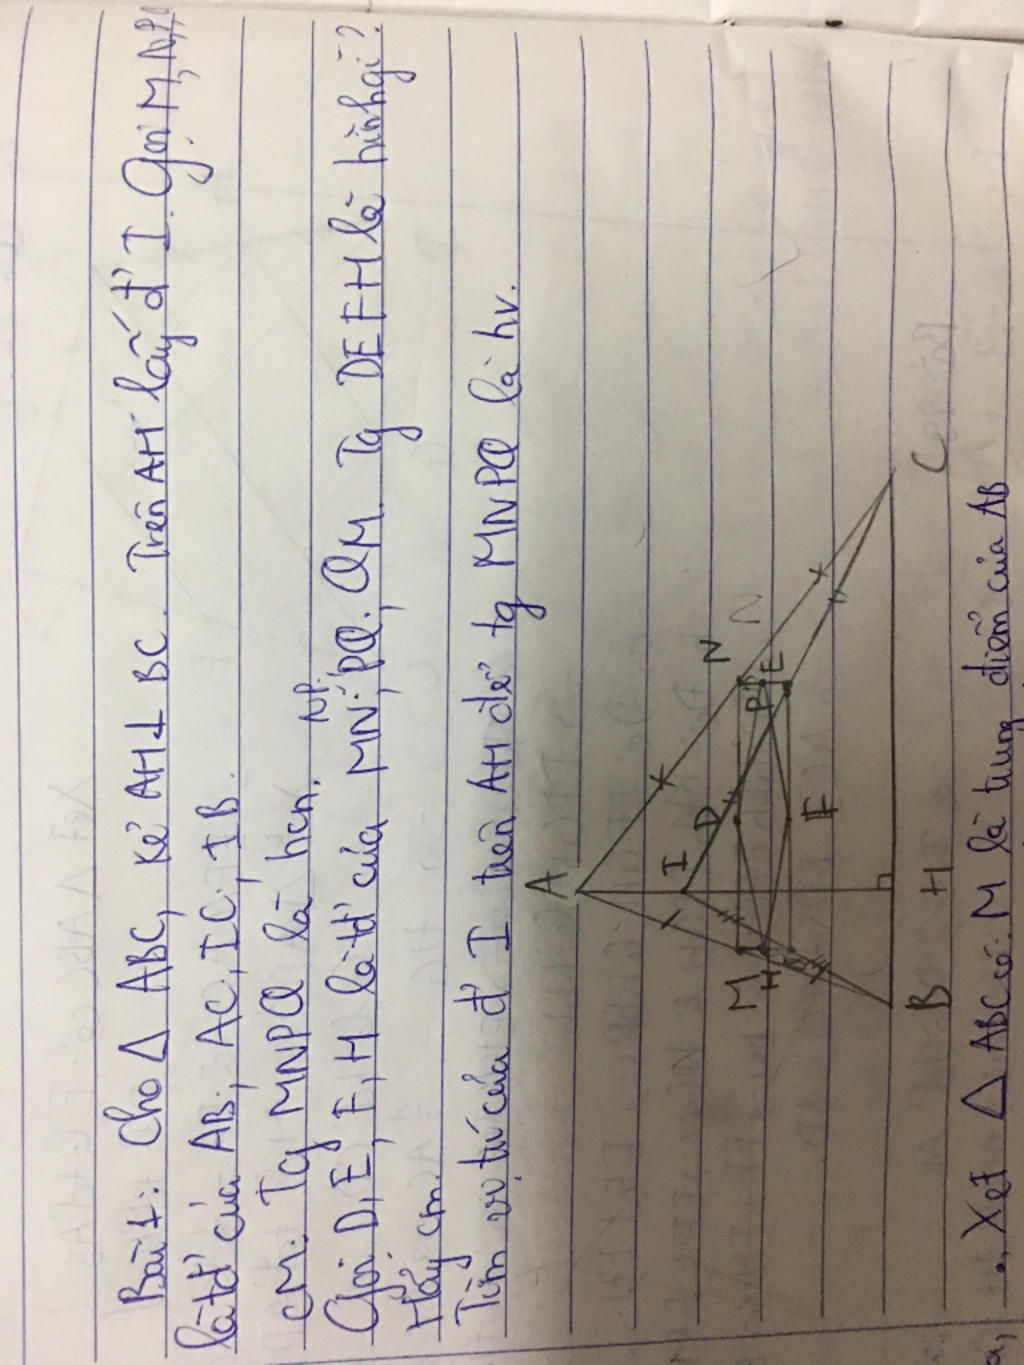 Bài 1: Cho Δ ABC, kẻ AH⊥BC. Trên AH lấy đ' I. Gọi M, N, P,
là tđ' của AB, AC, IC, IB.
CM: Tg MNPQ là hcn.
Gọi D, E, F, H là tđ' của MN, NP, PQ, QM. Tg DEFH là hình gì?
Hãy cm.
Tìm vị trí của đ' I trên AH để tg MNPQ là hv.
A
I
M
D
N
N
H
P
E
F
B
H
C
a, • Xét Δ ABC có: M là trung điểm của AB